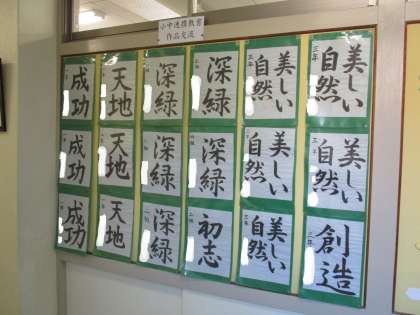 小中連携教育
作品交流
成功
天地
深緑
深緑
美しい
自然
三年
美しい
自然
三年
成功
天地
深緑
深緑
美しい
自然
美しい
自然
成功
天地
深緑
初志
美しい
自然
三年
創造
三年